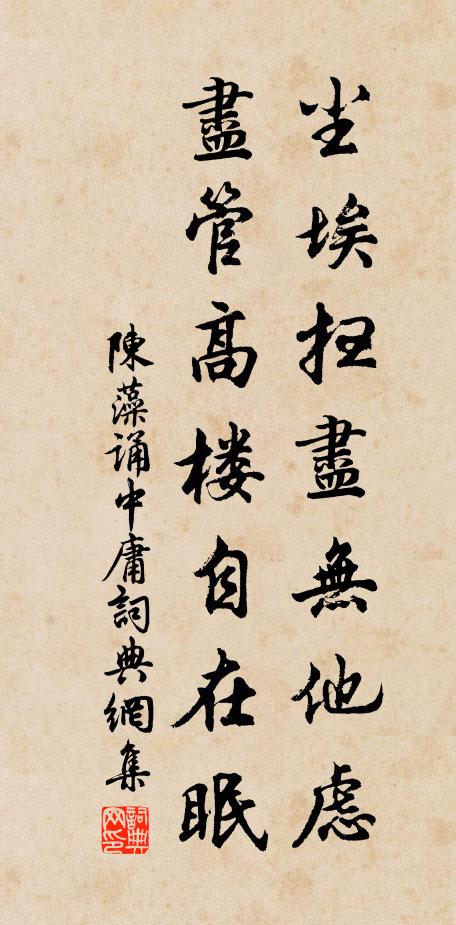 尘埃扫盡無他虑
盡管高楼自在眠
陳藻诵中庸詞典網集
詞典网印